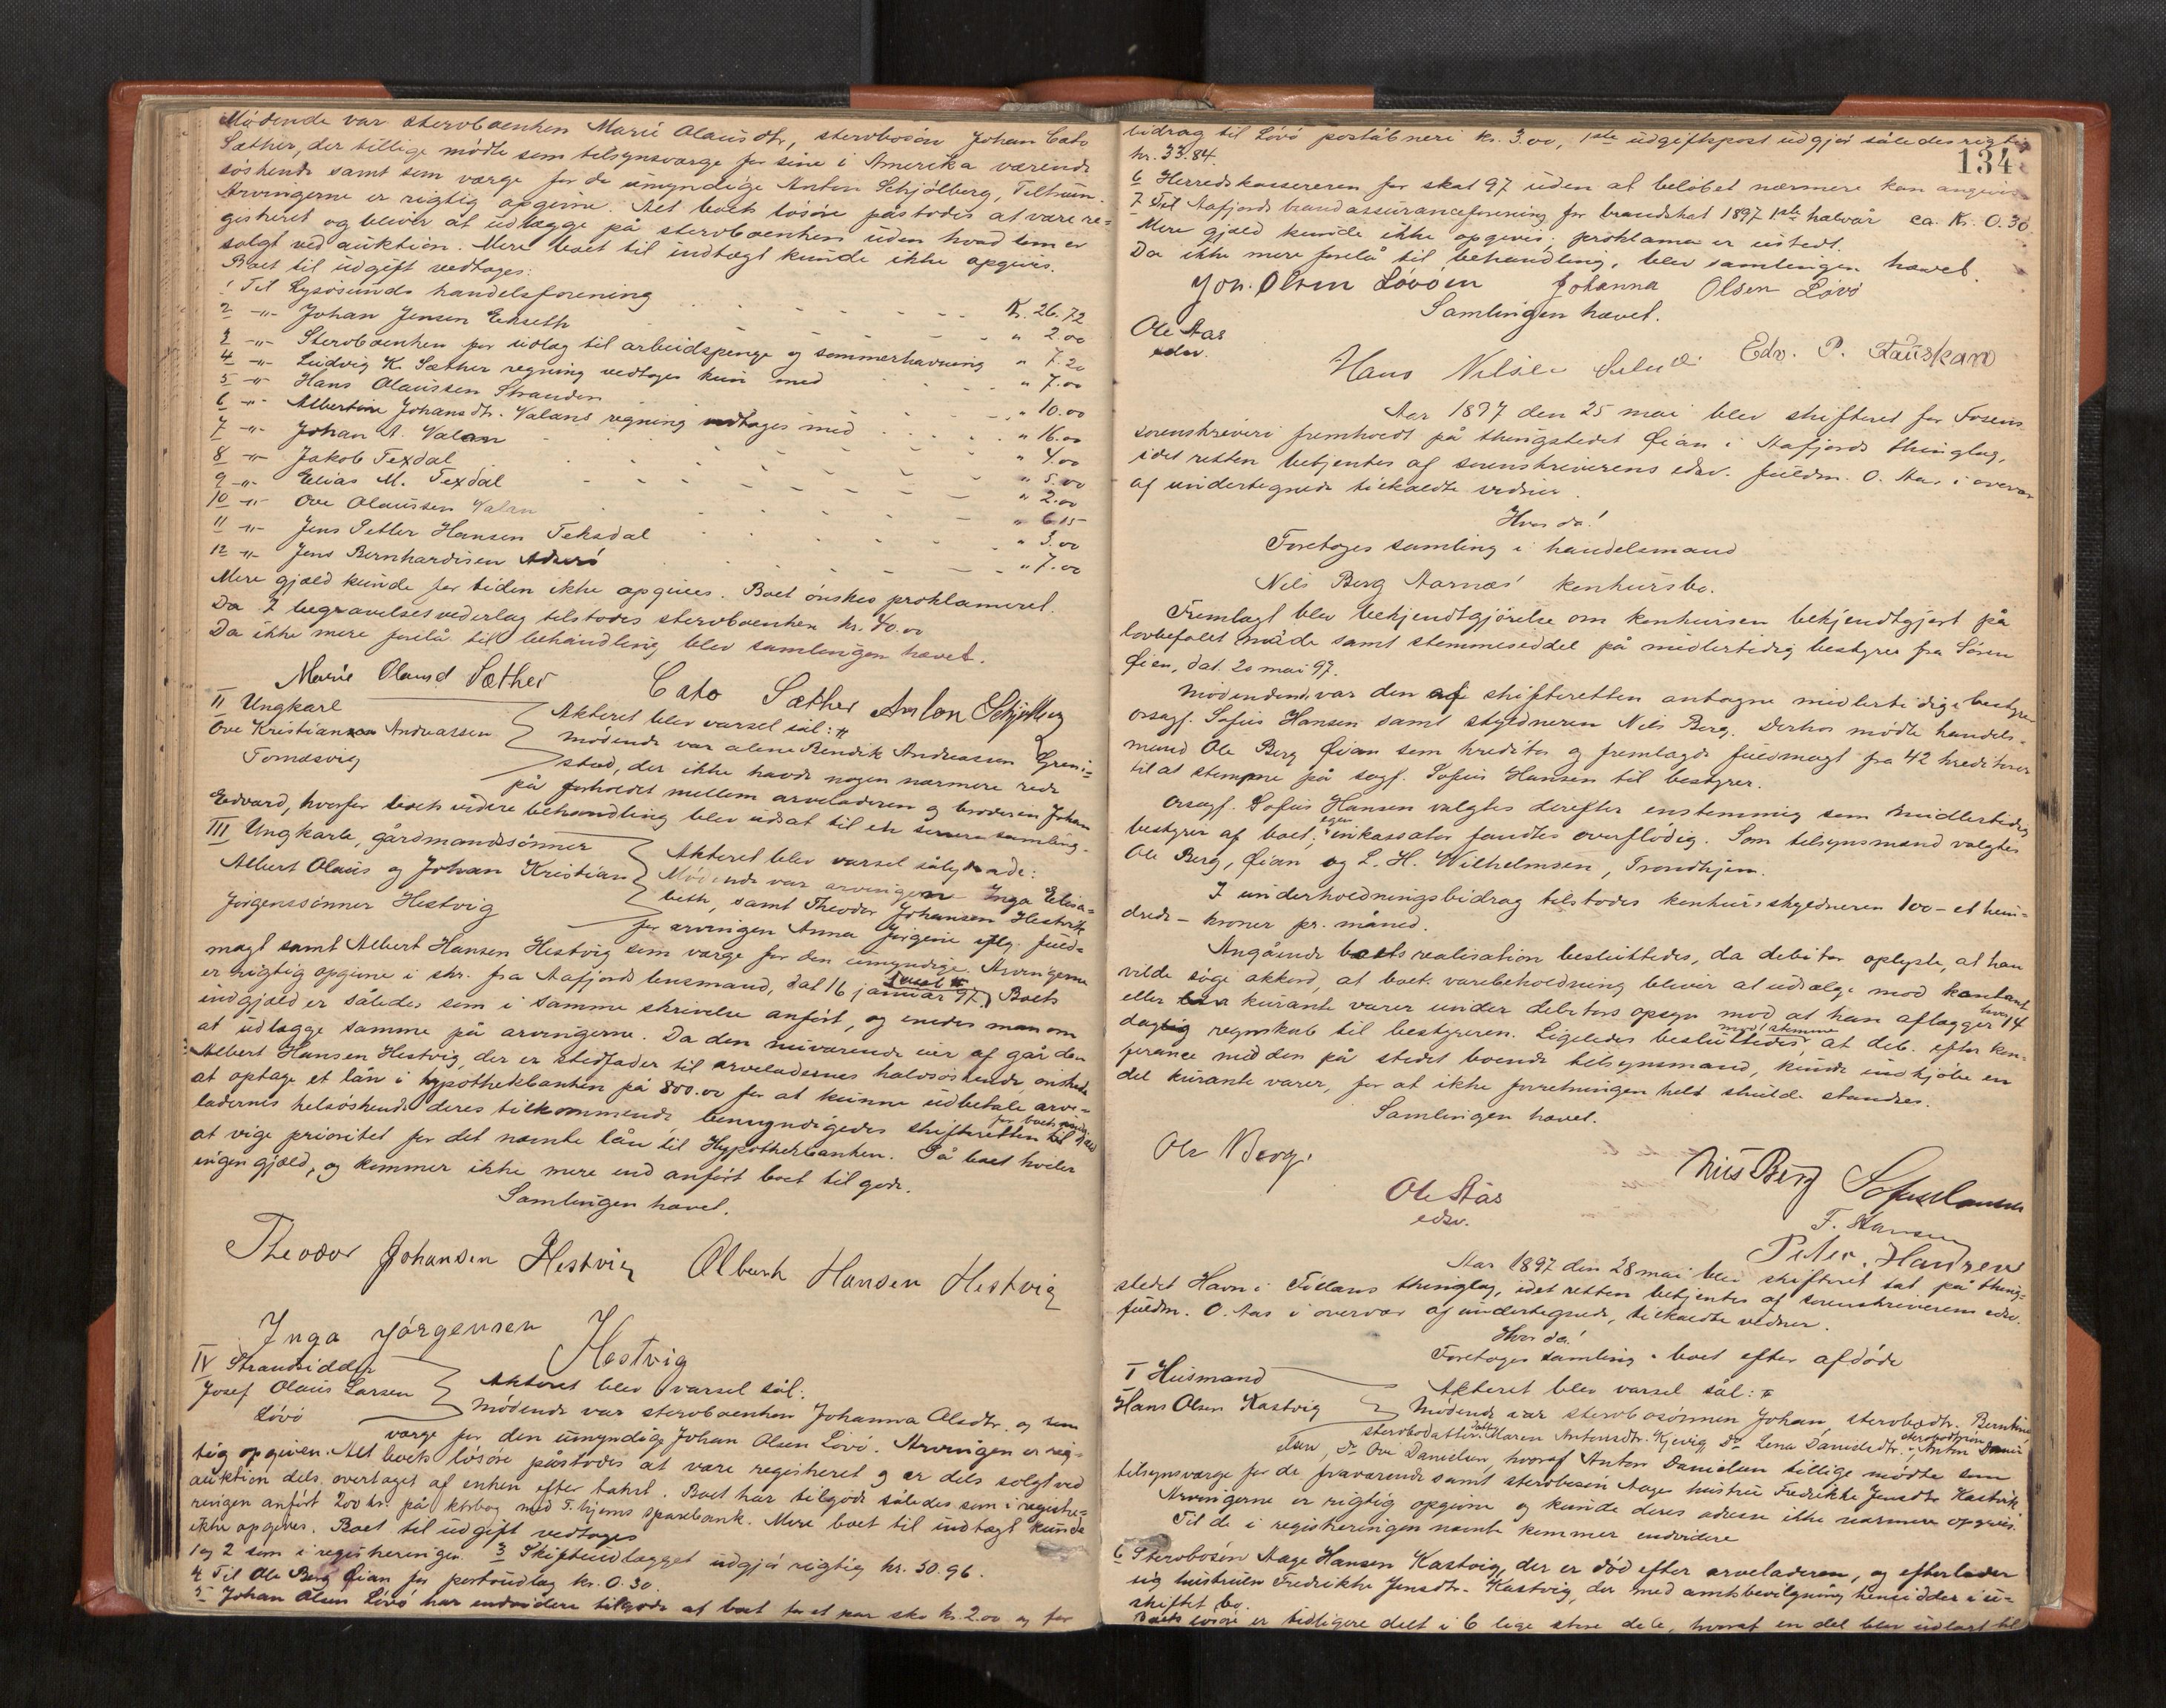 Mødende var stervboenken Marie Olausdtr, stervbosøn Johan Cato
Sæther, der tillige mødte som tilsynsværge for sine i Amerika værende
søskende samt som værge for de umyndige Anton Schjölberg, Tiltrum.
Arvingerne er rigtig opgivne. Alt boets løsøre påstodes at være re=
gistreret og bliver at udlægge på stervboenken uden hvad som er
solgt ved auktion. Mere boet til indtægt kunde ikke opgives.
Boet til udgift vedtages:
1 Til Lysøsunds handelsforening Kr. 26.72
2 -"- Johan Jensen Ekseth " 2.00
3 -"- Stervboenken for udlæg til arbeidspenge og sommerhavning " 7.20
4 -"- Ludvig K. Sæther regning vedtages kun med " 7.00
5 -"- Hans Olaussen Stranden " 10.00
6 -"- Albertine Johansdtr. Valans regning vedtages med " 16.00
7 -"- Johan A. Valan " 4.00
8 -"- Jakob Texdal " 5.00
9 -"- Elias M. Texdal " 2.00
10 -"- Ove Olaussen Valan " 6.15
11 -"- Jens Petter Hansen Teksdal " 3.00
12 -"- Jens Bernhardsen " 7.00
Mere gjæld kunde for tiden ikke opgives. Boet ønskes proklameret.
Da I begravelsesvederlag tilstodes stervboenken kr. 40.00
Da ikke mere forelå til behandling blev samlingen hævet.
Marie Olausd Sæther Cato Sæther Anton Schjølberg
II Ungkarl
Ove Kristian Andreassen
Tomasvig
Akteret blev varsel sål:
Mødende var alene Bendik Andreassen Greni=
stad, der ikke havde nogen nærmere rede
på forholdet mellem arveladeren og broderen Johan
Edvard, hvorfor boets videre behandling blev udsat til en senere samling.
III Ungkarle, gårdmandssønner
Albert Olaus og Johan Kristian
Jørgenssønner Hestvig
Akteret blev varsel sålydende:
Mødende var arvingen Inga Elisa=
beth, samt Theodor Johansen Hestvik
for arvingen Anna Jørgine iflg. fuld=
magt samt Albert Hansen Hestvig som værge for den umyndige. Arvingerne
er rigtig opgivne i skr. fra Aafjords lensmand, dat 16 januar 97. Boets
indgjæld er således som i samme skrivelse anført, og enedes man om
at udlægge samme på arvingerne. Da den nuværende eier af gården
Albert Hansen Hestvig, der er stedfader til arveladernes halvsøskende ønskede
at optage et lån i hypothekbanken på 800.00 for at kunne udbetale arve=
ladernes helsøskende deres tilkommende, bemyndigedes skifteretten til
at vige prioritet for det nævnte lån til Hypothekbanken. På boet hviler
ingen gjæld, og kommer ikke mere end anført boet tilgode.
Samlingen hævet.
Theodor Johansen Hestvig Albert Hansen Hestvig
Inga Jørgensen
Hestvig
IV Strandsidder
Josef Olaus Larsen
Løvø
Akteret blev varsel sål:
Mødende var stervboenken Johanna Olsdtr. og som
værge for den umyndige Johan Olsen Løvø. Arvingen er rig=
tig opgiven. Alt boets løsøre påstodes at være registreret og er dels solgt ved
auktion dels overtaget af enken efter takst. Boet har tilgode således som i registre=
ringen anført 200 kr. på kbog med T.hjems sparebank. Mere boet til indtægt kunde
ikke opgives. Boet til udgift vedtages
1 og 2 som i registreringen. 3 Skifteudlægget udgjør rigtig kr. 30.96.
4 Til Ole Berg Øian for portoudlæg kr. 0.30.
5 Johan Olsen Løvø har endvidere tilgode af boet for et par sko kr. 2.00 og for
134
bidrag til Løvø postabneri kr. 3.00, 1ste udgiftspost udgjør således rigtig
kr. 33.84.
6 Herredskassereren for skat 97 uden at beløbet nærmere kan angives
7 Til Aafjords brandassuranceforening for brandskat 1897 1ste halvår ca. Kr. 0.30
Mere gjæld kunde ikke opgives; proklama er udstedt.
Da ikke mere forelå til behandling, blev samlingen hævet.
Joh. Olsen Løvöen Johanna Olsen Løvö
Samlingen hævet.
Ole Aas
edsv.
Hans Nilsen Edv. P. Fauskan
Aar 1897 den 25 mai blev skifteret for Fosens
sorenskriveri fremholdt på thingstedet Øian i Aafjords thinglag,
idet retten betjentes af sorenskriverens edsv. fuldm. O. Aas i overvær
af undertegnede tilkaldte vidner.
Hvor da!
Foretoges samling i handelsmand
Nils Berg Aarnæs' konkursbo.
Fremlagt blev bekjendtgjörelse om konkursen bekjendtgjort på
lovbefalet måde samt stemmeseddel på midlertidig bestyrer fra Søren
Øien, dat. 20 mai 97.
Mødende var den af skifteretten antagne midlertidige bestyrer
orsagf. Sofus Hansen samt skyldneren Nils Berg. Derhos mødte handels=
mand Ole Berg Øian som kreditor og fremlagde fuldmagt fra 42 kreditorer
til at stemme på sagf. Sofus Hansen til bestyrer.
Orsagf. Sofus Hansen valgtes derefter enstemmig som midlertidig
bestyrer af boet; egen inkassator fandtes overflødig. Som tilsynsmand valgtes
Ole Berg, Øian og L. H. Wilhelmsen, Trondhjem.
I underholdningsbidrag tilstodes konkursskyldneren 100 - et hun=
drede - kroner pr. måned.
Angående boets realisation besluttedes, da debitor oplyste, at han
vilde søge akkord, at boets varebeholdning bliver at udsælge mod kontant
eller kurante varer under debitors opsyn mod at han aflægger hver 14
daglig regnskab til bestyreren. Ligeledes besluttedes mod 1 stemme at deb. efter kon=
ferance med den på stedet boende tilsynsmand, kunde indkjøbe en
del kurante varer, for at ikke forretningen helt skulde standses.
Samlingen hævet.
Ole Berg.
Nils Berg Sofus Hansen
Ole Aas
edsv.
F. Hansen
Peter Handsen
Aar 1897 den 28 mai blev skifteret sat på thing=
stedet Havn i Fillans thinglag, idet retten betjentes af sorenskriverens edsv.
fuldm. O. Aas i overvær af undertegnede, tilkaldte vidner.
Hvor da!
Foretoges samling i boet efter afdøde
I Husmand
Hans Olsen Kastvig
Akteret blev varsel sål:
Mødende var stervbosønnen Johan, stervbodtr. Berntine
stervbodatter Maren Antonsdtr. Kjevig, Do Lena Danielsdtr., stervbodtrsøn Anton Dani=
elsen, Do Ove Danielsen, hvoraf Anton Danielsen tillige mødte som
tilsynsværge for de fraværende samt stervbosøn Aages hustru Fredrikke Jensdtr Kastvik
Arvingerne er rigtig opgivne og kunde deres adresse ikke nærmere opgives.
Til de i registreringen nævnte kommer endvidere
6 Stervbosøn Aage Hansen Kastvig, der er død efter arveladeren, og efterlader
sig hustruen Fredrikke Jensdtr. Kastvig, der med amtsbevilgning hensidder i u=
skiftet bo.
Boets løsøre er tidligere delt i 6 lige store dele, hvoraf en del blev udlagt til